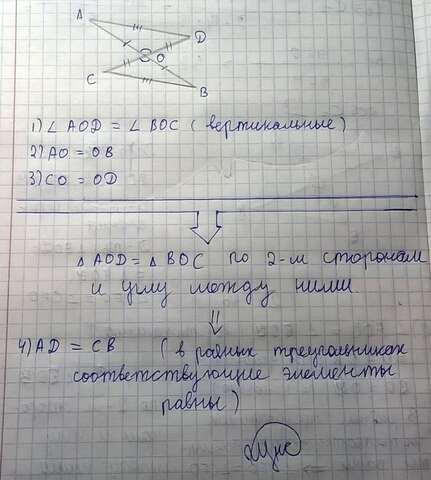 A
D
O
C
B
1) ∠ AOD = ∠ BOC ( вертикальные )
2) AO = OB
3) CO = OD
△ AOD = △ BOC по 2-м сторонам
и углу между ними.
4) AD = CB ( в равных треугольниках
соответствующие элементы
равны )